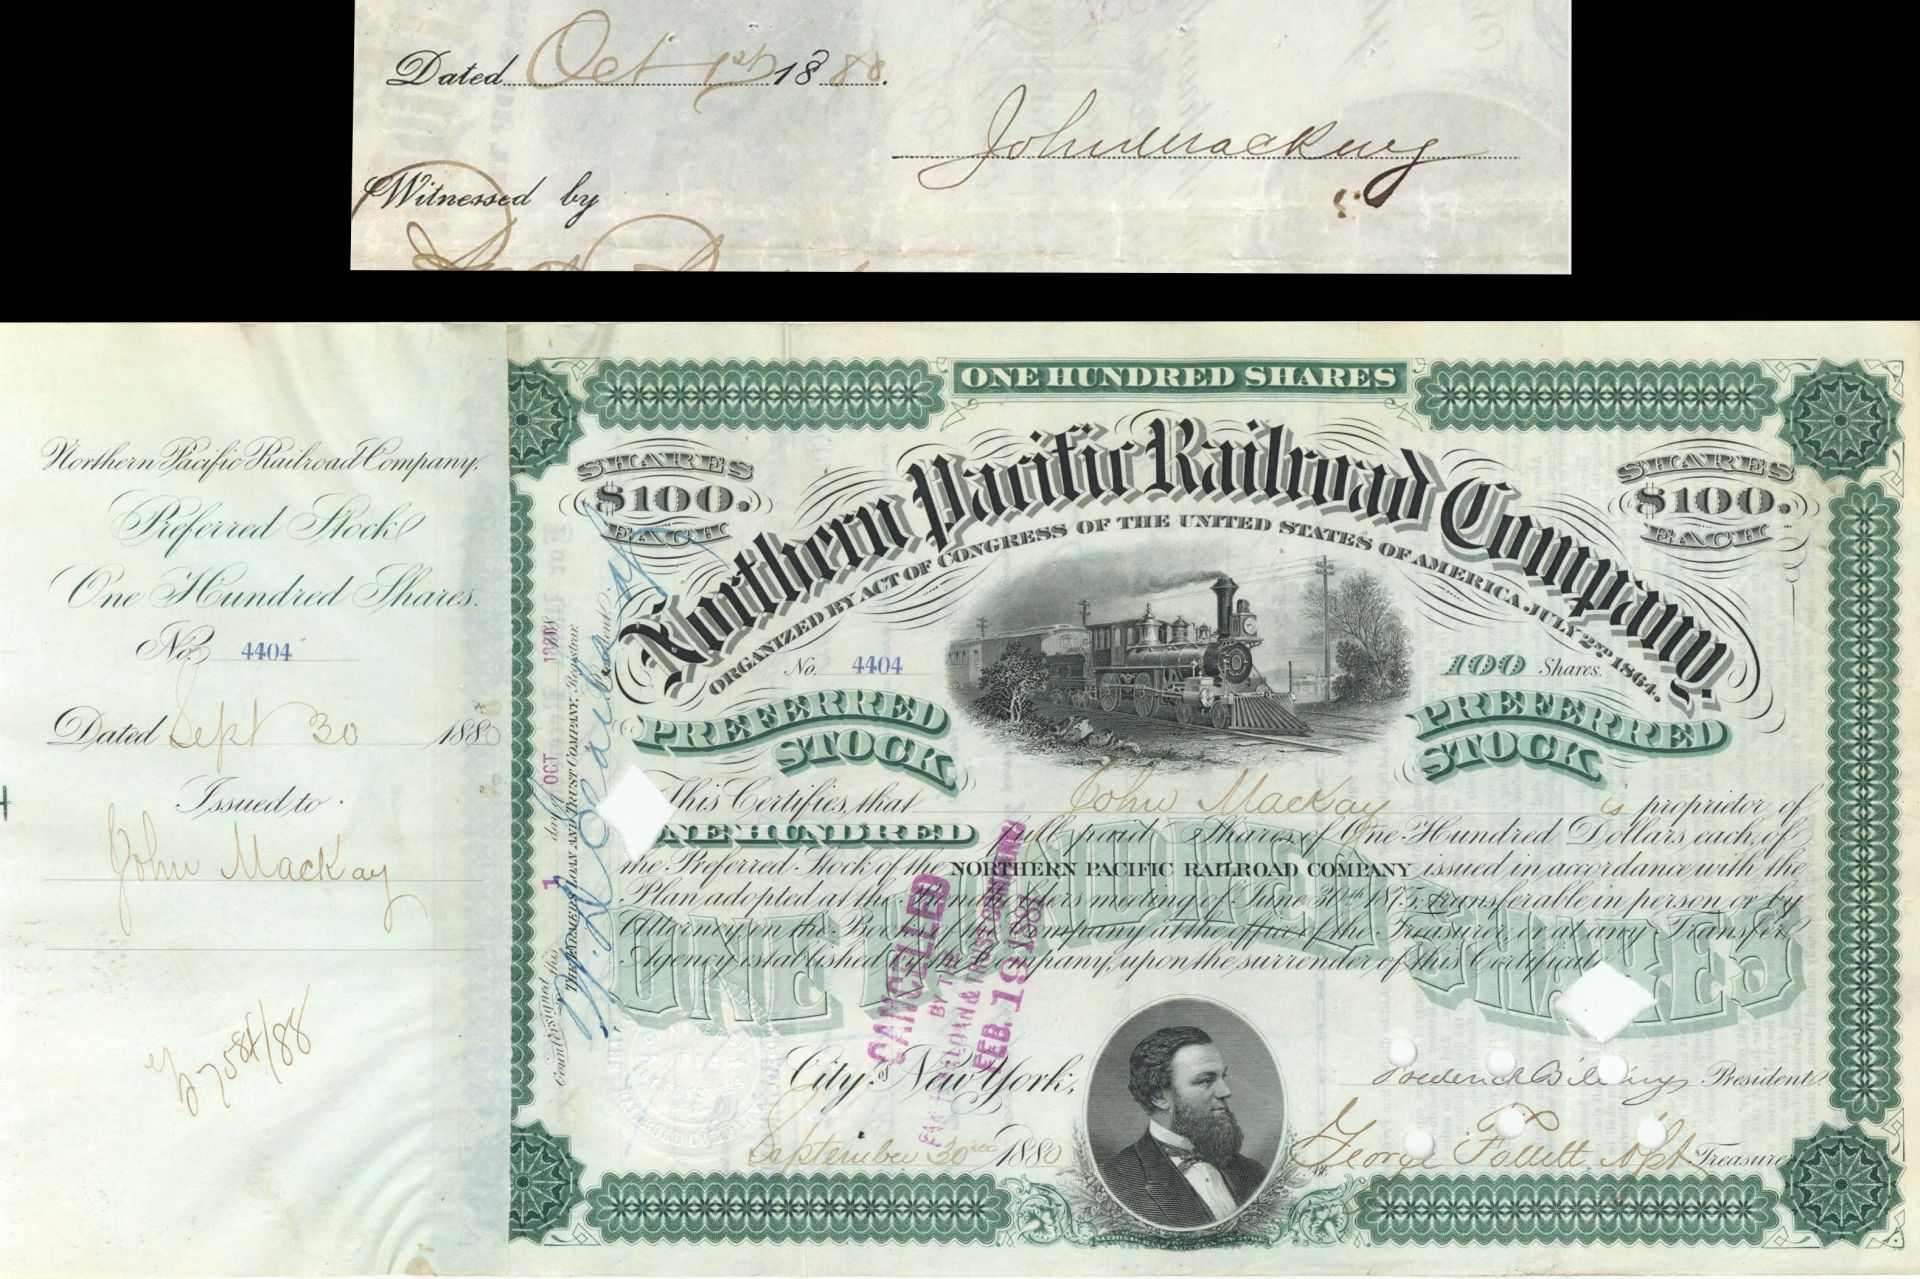 Dated Oct 1st 1880.
John Mackay
Witnessed by
Northern Pacific Railroad Company.
Preferred Stock
One Hundred Shares.
No. 4404
Dated Sept 30 1880
Issued to
John MacKay
ONE HUNDRED SHARES
SHARES $100. EACH
SHARES $100. EACH
Northern Pacific Railroad Company.
ORGANIZED BY ACT OF CONGRESS OF THE UNITED STATES OF AMERICA, JULY 2ND 1864.
No. 4404
100 Shares.
PREFERRED STOCK
PREFERRED STOCK
This Certifies, that John MacKay is proprietor of
ONE HUNDRED full paid Shares, of One Hundred Dollars each, of
the Preferred Stock of the NORTHERN PACIFIC RAILROAD COMPANY issued in accordance with the
Plan adopted at the Bondholders meeting of June 30th 1875, transferable in person or by
Attorney on the Books of the Company at the office of the Treasurer, or at any Transfer
Agency established by the Company, upon the surrender of this Certificate.
ONE HUNDRED SHARES
City of New York,
September 30th 1880
Frederick Billings President
George Follett Treasurer
Countersigned this 1 day of OCT 1880
THE FARMERS' LOAN AND TRUST COMPANY, Registrar.
CANCELLED
BY THE
FARMERS LOAN & TRUST COMPANY
FEB. 19 188